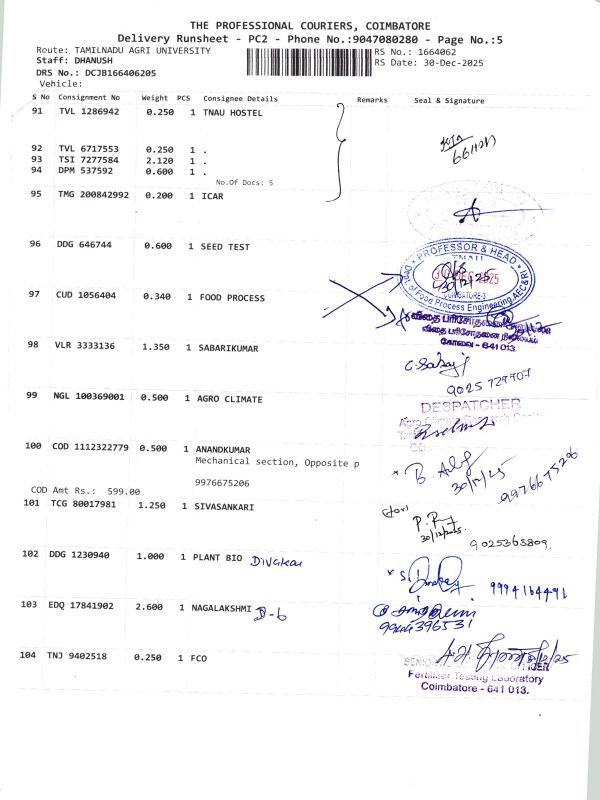 THE PROFESSIONAL COURIERS, COIMBATORE
Delivery Runsheet - PC2 - Phone No.:9047080280 - Page No.:5
Route: TAMILNADU AGRI UNIVERSITY RS No.: 1664062
Staff: DHANUSH RS Date: 30-Dec-2025
DRS No.: DCJB166406205
Vehicle:
S No Consignment No Weight PCS Consignee Details Remarks Seal & Signature
91 TVL 1286942 0.250 1 TNAU HOSTEL
92 TVL 6717553 0.250 1 .
93 TSI 7277584 2.120 1 .
94 DPM 537592 0.600 1 .
No.Of Docs: 5
95 TMG 200842992 0.200 1 ICAR
96 DDG 646744 0.600 1 SEED TEST
PROFESSOR & HEAD
TNAU
30/12/25
COIMBATORE-3
of Food Process Engineering AEC&RI
97 CUD 1056404 0.340 1 FOOD PROCESS
விதை பரிசோதனை
விதை பரிசோதனை நிலையம்
கோவை - 641 013.
98 VLR 3333136 1.350 1 SABARIKUMAR
99 NGL 100369001 0.500 1 AGRO CLIMATE
DESPATCHER
Agro Climate Research Centre
100 COD 1112322779 0.500 1 ANANDKUMAR
Mechanical section, Opposite p
9976675206
30/12/25
9976675206
COD Amt Rs.: 599.00
101 TCG 80017981 1.250 1 SIVASANKARI
30/12/2025
9025363809.
102 DDG 1230940 1.000 1 PLANT BIO Divakar
9994164491
103 EDQ 17841902 2.600 1 NAGALAKSHMI D-6
104 TNJ 9402518 0.250 1 FCO
Fertilizer Testing Laboratory
Coimbatore - 641 013.